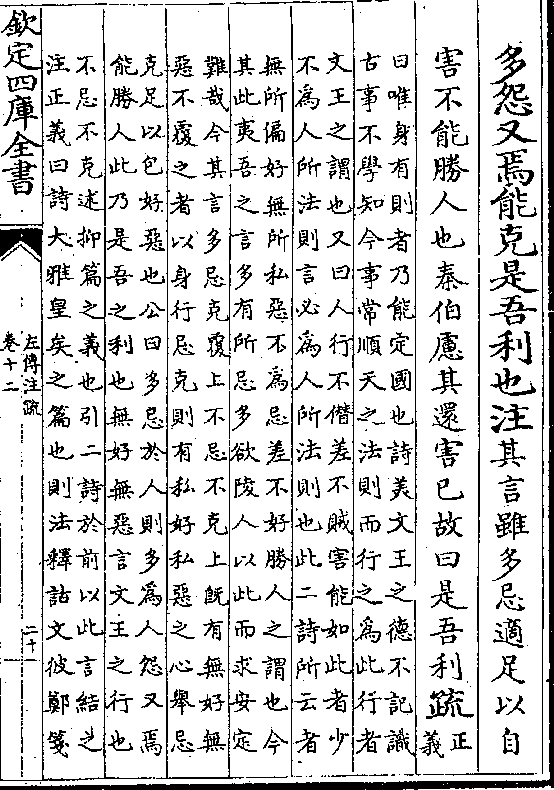 多怨又焉能克是吾利也注其言雖多忌適足以自
害不能勝人也秦伯慮其還害已故曰是吾利疏正
義
曰唯身有則者乃能定國也詩美文王之德不記識
古事不學知今事常順天之法則而行之為此行者
文王之謂也又曰人行不僭差不賊害能如此者少
不為人所法則言必為人所法則也此二詩所云者
無所偏好無所私惡不為忌差不好勝人之謂也今
其此夷吾之言多有所忌多欲陵人以此而求安定
難哉今其言多忌克覆上不忌不克上既有無好無
惡不覆之者以身行忌克則有私好私惡之心舉忌
克足以包好惡也公曰多忌於人則多為人怨又焉
能勝人此乃是吾之利也無好無惡言文王之行也
不忌不克述抑篇之義也引二詩於前以此言結之
注正義曰詩大雅皇矣之篇也則法釋詁文彼鄭箋
欽定四庫全書
左傳注疏
卷十二
二十